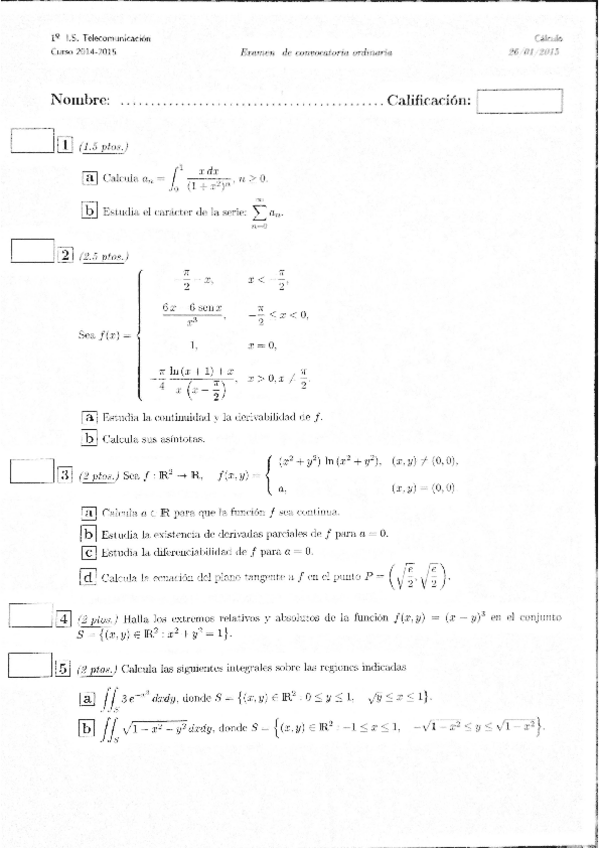 1º I.S. Telecomunicación
Curso 2014-2015
Examen de convocatoria ordinaria
Cálculo
26/01/2015
Nombre: ............................................ Calificación:
1 (1.5 ptos.)
a Calcula aₙ = ∫₀¹ x dx / (1 + x²)ⁿ, n ≥ 0.
b Estudia el carácter de la serie: ∑_{n=0}^{∞} aₙ.
2 (2.5 ptos.)
Sea f(x) = {
π/2 x, x < π/2,
6x 6 sen x / x³, −π/2 ≤ x < 0,
1, x = 0,
−π/4 ln(x + 1) + x / x (x − π/2), x > 0, x ≠ π/2.
a Estudia la continuidad y la derivabilidad de f.
b Calcula sus asíntotas.
3 (2 ptos.) Sea f : ℝ² → ℝ, f(x, y) = { (x² + y²) ln (x² + y²), (x, y) ≠ (0, 0),
a, (x, y) = (0, 0)
a Calcula a ∈ ℝ para que la función f sea continua.
b Estudia la existencia de derivadas parciales de f para a = 0.
c Estudia la diferenciabilidad de f para a = 0.
d Calcula la ecuación del plano tangente a f en el punto P = (√(e/2), √(e/2)).
4 (2 ptos.) Halla los extremos relativos y absolutos de la función f(x, y) = (x − y)³ en el conjunto
S = {(x, y) ∈ ℝ² : x² + y² = 1}.
5 (2 ptos.) Calcula las siguientes integrales sobre las regiones indicadas
a ∬_S 3 e^{−x³} dxdy, donde S = {(x, y) ∈ ℝ² : 0 ≤ y ≤ 1, √y ≤ x ≤ 1}.
b ∬_S √(1 − x² − y²) dxdy, donde S = {(x, y) ∈ ℝ² : −1 ≤ x ≤ 1, −√(1 − x²) ≤ y ≤ √(1 − x²)}.